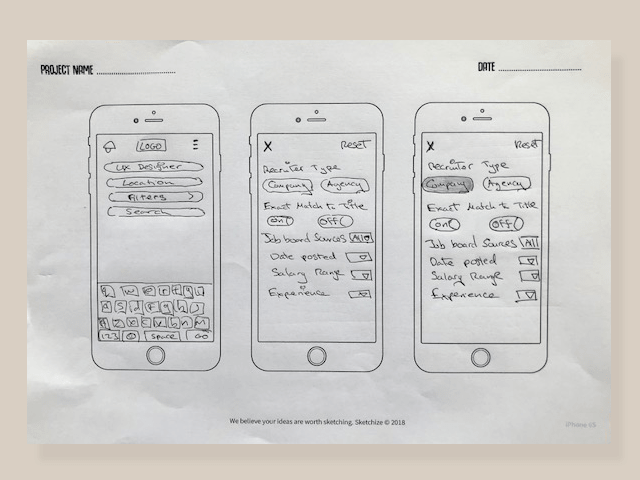 PROJECT NAME
DATE
LOGO
UX Designer
Location
Filters >
Search
q w e r t y u
a s d f g h j
z x c v b n m
123 space GO
X Reset
Recruiter Type
Company Agency
Exact Match to Title
on off
Job board Sources All
Date posted
Salary Range
Experience
X Reset
Recruiter Type
Company Agency
Exact Match to Title
on off
Job board Sources All
Date posted
Salary Range
Experience
We believe your ideas are worth sketching. Sketchize © 2018